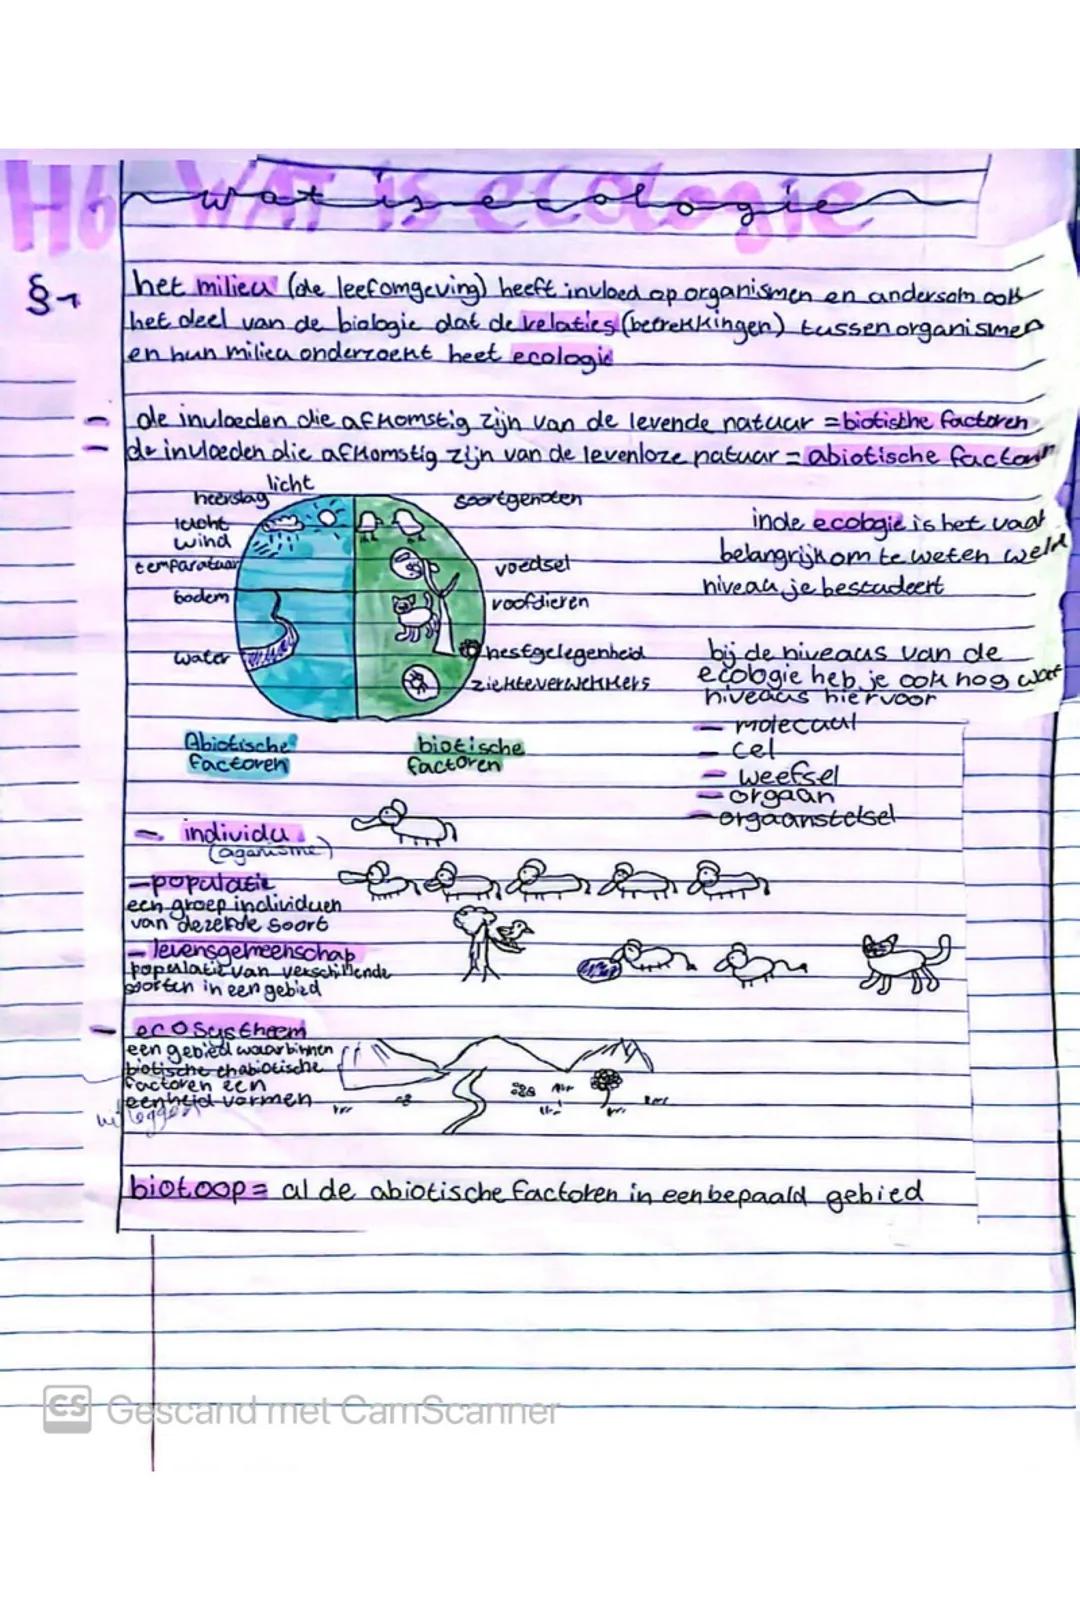 H6 WAT is ecologie
wat is ecologie
§1
het milieu (de leefomgeving) heeft invloed op organismen en andersom ook
het deel van de biologie dat de relaties (betrekkingen) tussen organismen
en hun milieu onderzoekt heet ecologie
- de invloeden die afkomstig zijn van de levende natuur = biotische factoren
- de invloeden die afkomstig zijn van de levenloze natuur = abiotische factoren
licht
neerslag
lucht
wind
temparatuur
bodem
water
soortgenoten
voedsel
roofdieren
nestgelegenheid
ziekteverwekkers
Abiotische
factoren
biotische
factoren
in de ecologie is het vaak
belangrijk om te weten welk
niveau je bestudeert
bij de niveaus van de
ecologie heb je ook nog wat
niveaus hiervoor
- molecuul
- cel
- weefsel
- orgaan
- orgaanstelsel
- individu
(oganisme)
- populatie
een groep individuen
van dezelfde soort
- levensgemeenschap
populatie van verschillende
soorten in een gebied
- ecosystheem
een gebied waarbinnen
biotische en abiotische
factoren een
eenheid vormen
uitleggen
biotoop = al de abiotische factoren in een bepaald gebied
CS Gescand met CamScanner